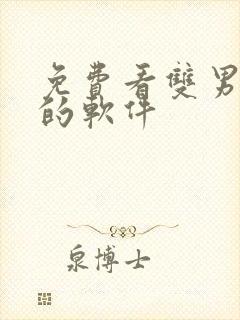 免費看雙男
的軟件
泉博士